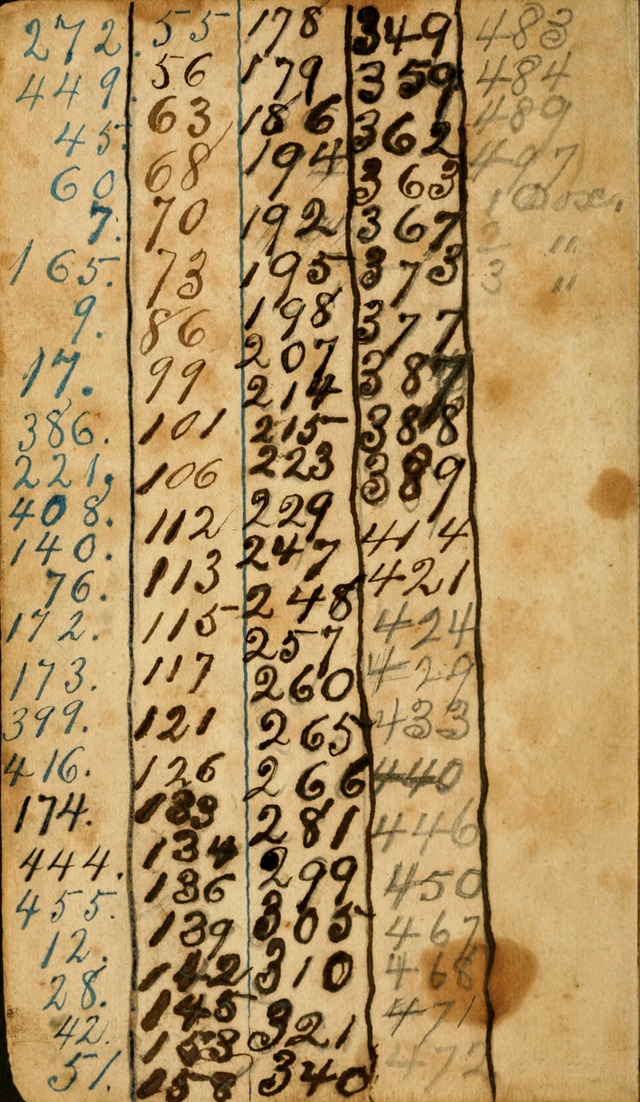 272.
449.
45.
60
7.
165.
9.
17.
386.
221.
408.
140.
76.
172.
173.
399.
416.
174.
444.
455.
12.
28.
42.
51.
55
56
63
68
70
73
86
99
101
106
112
113
115
117
121
126
133
134
136
139
142
145
153
158
178
179
186
194
192
195
198
207
214
215
223
229
247
248
257
260
265
266
281
299
305
310
321
340
349
359
362
363
367
373
377
387
388
389
414
421
424
429
433
440
446
450
467
468
471
472
483
484
489
497
1
2 "
3 "